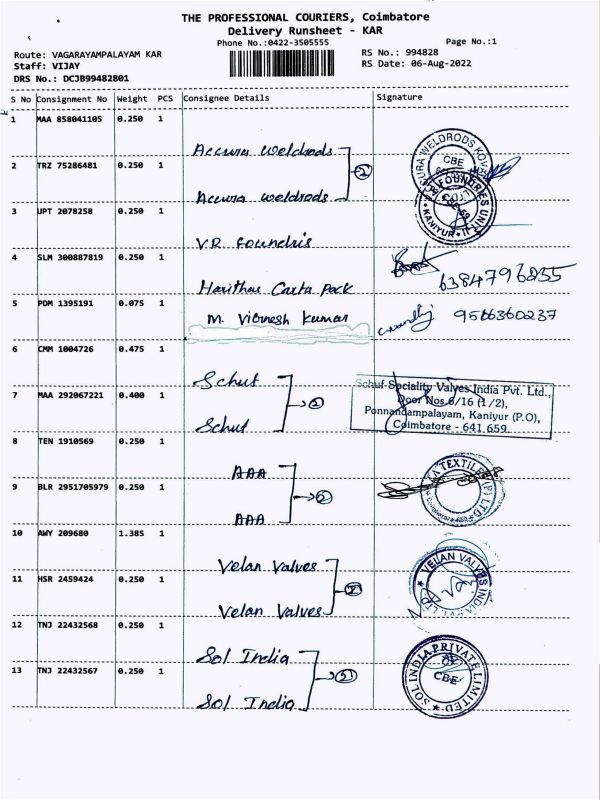 THE PROFESSIONAL COURIERS, Coimbatore
Delivery Runsheet - KAR
Phone No.:0422-3505555
Page No.:1
Route: VAGARAYAMPALAYAM KAR
RS No.: 994828
Staff: VIJAY
RS Date: 06-Aug-2022
DRS No.: DCJB99482801
S No Consignment No Weight PCS Consignee Details Signature
1 MAA 858041105 0.250 1
Accura weldrods
2 TRZ 75286481 0.250 1
Accura weldrods
3 UPT 2078258 0.250 1
V.R Foundris
4 SLM 300887819 0.250 1
Harithaa Carta Pack
6384796855
5 PDM 1395191 0.075 1
M. Vignesh Kumar
9566360237
6 CMM 1004726 0.475 1
Schuf
7 MAA 292067221 0.400 1
Schuf
Schuf Speciality Valves India Pvt. Ltd.,
Door Nos.6/16 (1/2),
Ponnandampalayam, Kaniyur (P.O),
Coimbatore - 641 659.
8 TEN 1910569 0.250 1
AAA
9 BLR 2951705979 0.250 1
AAA
10 AWY 209680 1.385 1
Velan Valves
11 HSR 2459424 0.250 1
Velan Valves
VELAN VALVES INDIA PVT LTD
12 TNJ 22432568 0.250 1
Sol India
13 TNJ 22432567 0.250 1
Sol India
SOL INDIA PRIVATE LIMITED
CBE